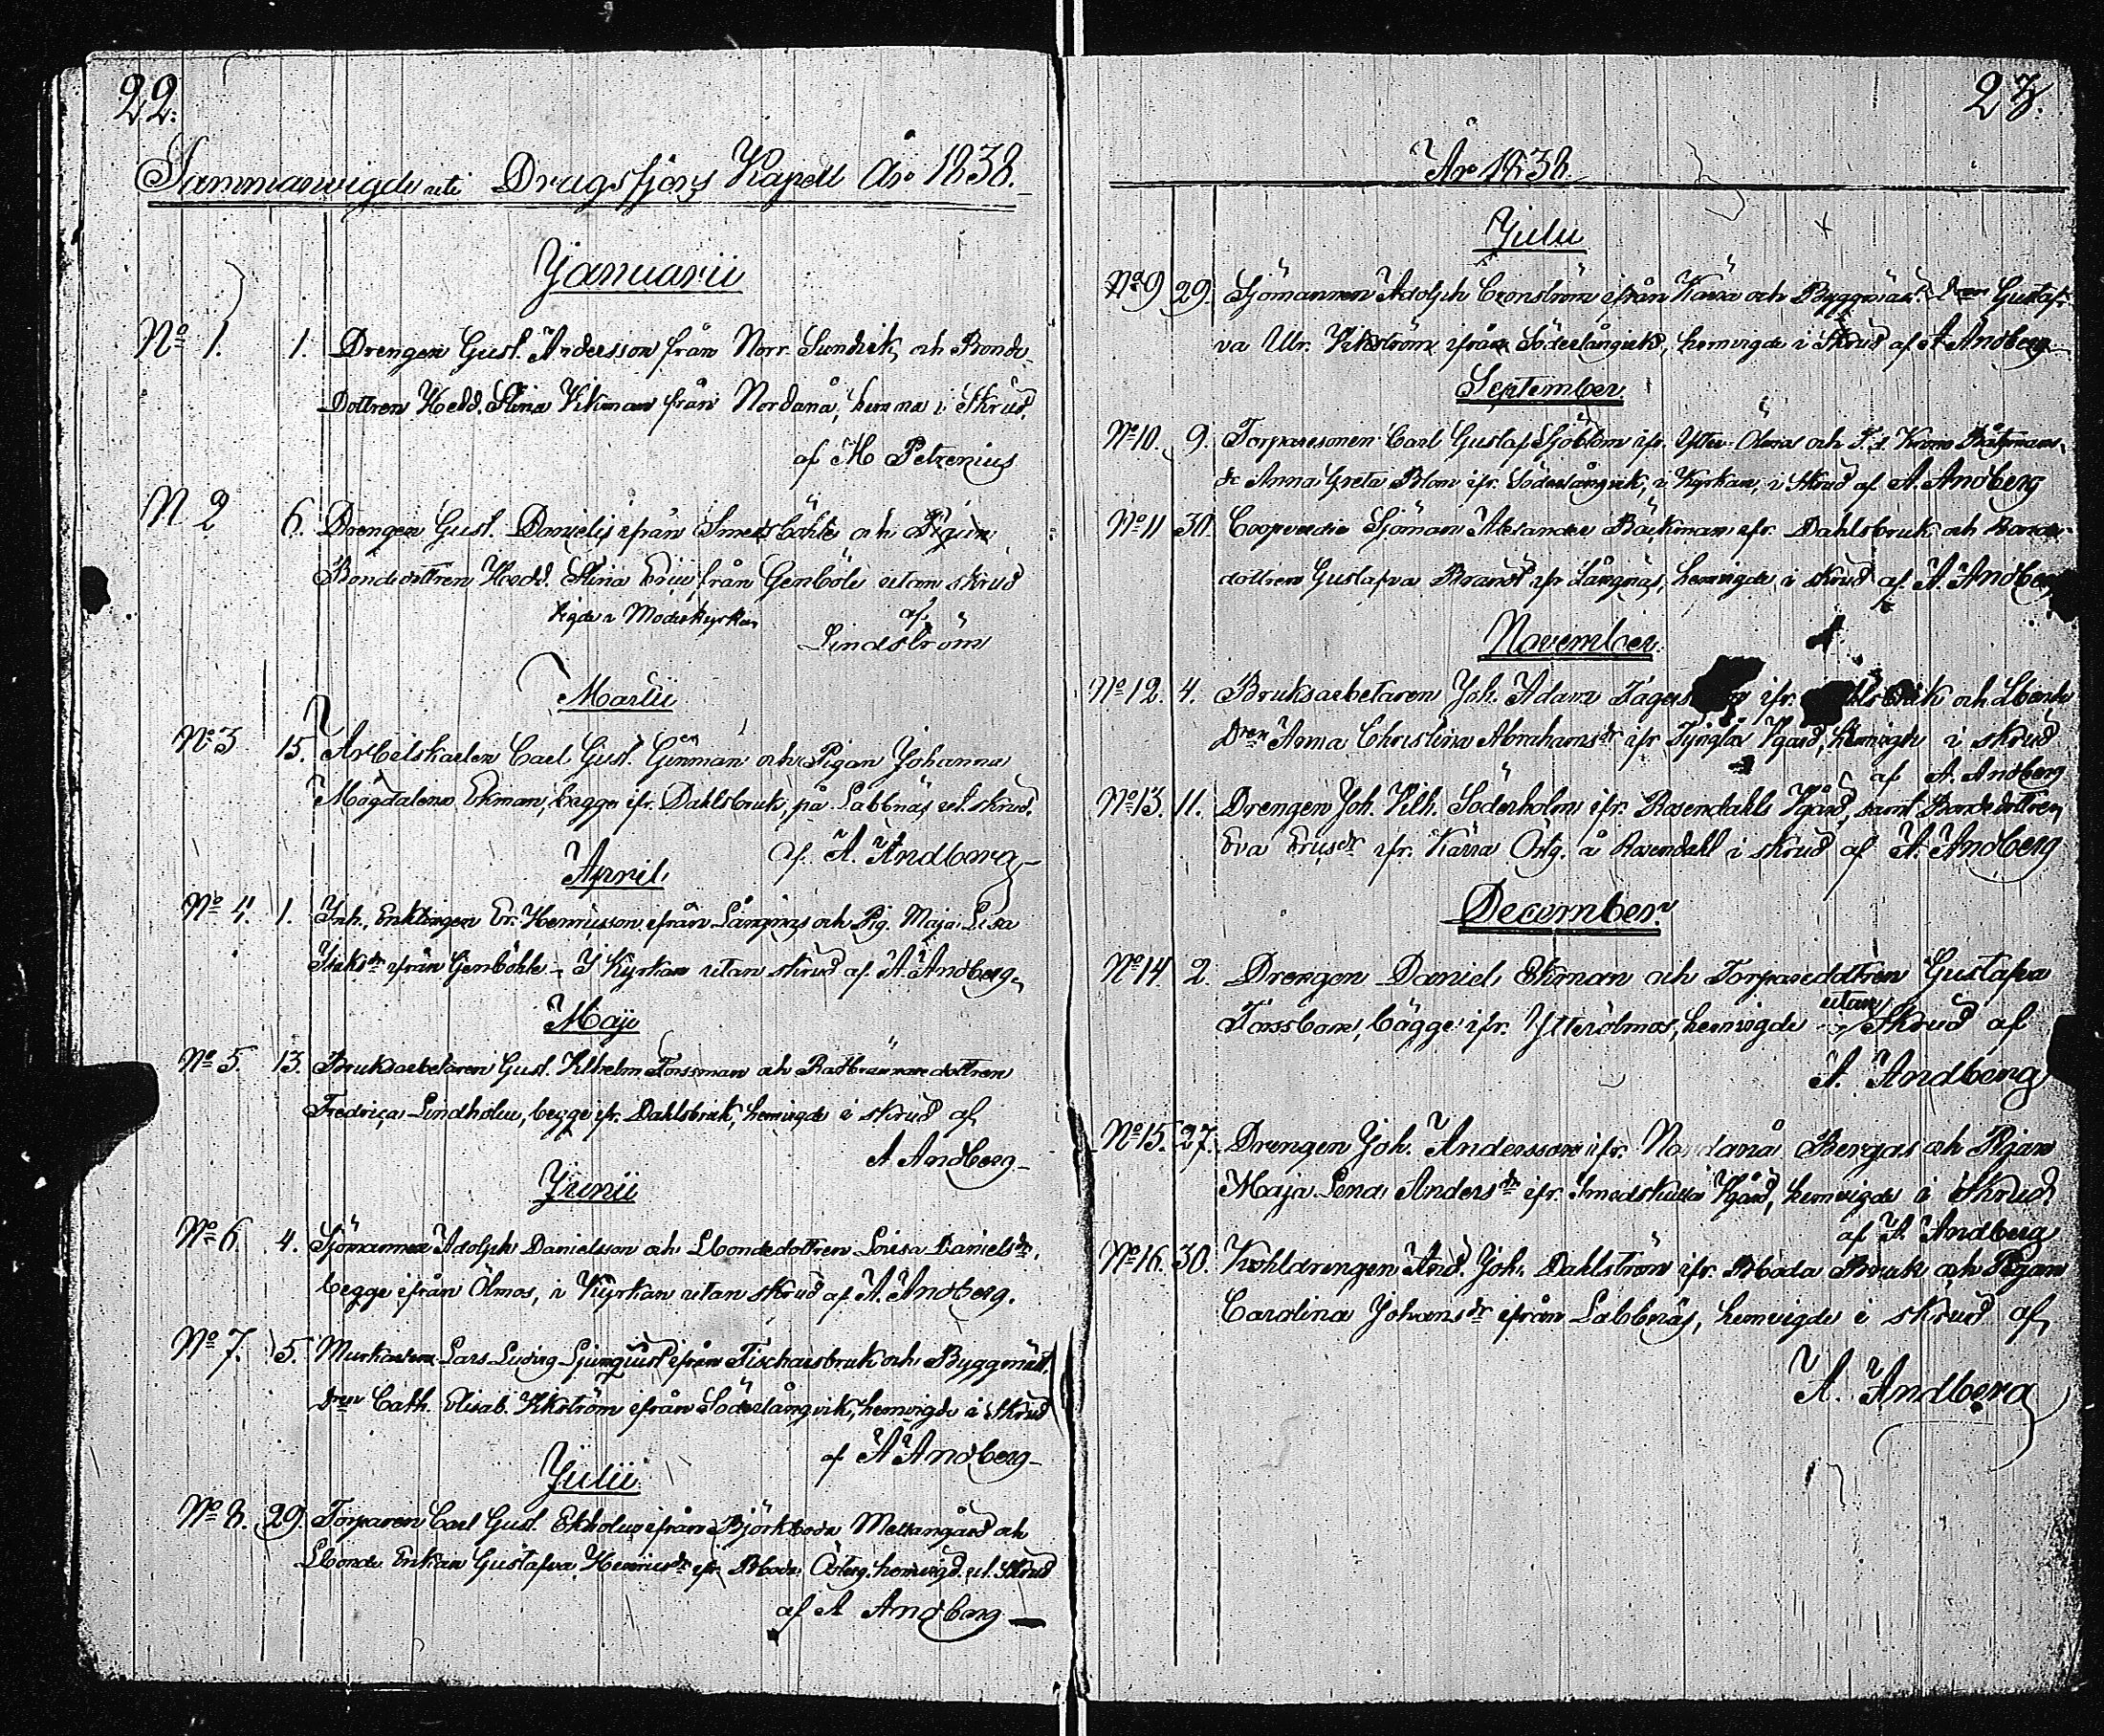 22.
Sammanvigde uti Dragsfjerds Kapell År 1838.
Januarii
No 1. 1. Drengen Gust. Andersson från Norr Sundvik, och Bonde
Dottren Hedd. Stina Vikman från Nordanå, hemma i Skrud,
af M Petrenius
N 2 6. Drengen Gust. Danielss. ifrån Smedsböhle och
Bondedottren Hedd. Stina från Genböle utan skrud
Vigde i Moderkyrkan af
Lindström
Martii
No 3 15. Arbetskarlen Carl Gust. Genman och Pigan Johanna
Magdalena Ekman, begge ifr. Dahlsbruk, på Labbnäs ut. skrud.
af A. Andberg
April
No 4. 1. Inh. Enklingen Er. Henricsson ifrån Långnäs och Pig. Maja Lisa
Isaksdr ifrån Genböhle - I Kyrkan utan skrud af A. Andberg
Maji
No 5. 13. Bruksarbetaren Gust. Vilhelm Forssman och dottren
Fredrica Lindholm, begge ifr. Dahlsbruk, hemvigde i skrud af
A Andberg
Junii
No 6. 4. Sjömannen Adolph Danielsson och Lbondedottren Lovisa Danielsdr,
begge ifrån Ölmos, i Kyrkan utan skrud af A. Andberg.
No 7. 5. Murkarlen Lars Ludvig Ljungqvist ifrån Fischarsbruk och Byggmäst.
dren Cath. Elisab. Vikström ifrån Söderlångvik, hemvigde i Skrud
af A Andberg
Julii
No 8. 29 Torparen Carl Gust. Ekholm ifrån Björkboda Mellangård och
Lbonde Enkan Gustafva Henricsdr ifr. Boda Österg. hemvigd. ut. Skrud
af A Andberg
23.
År 1838.
Julii
No 9 29. Sjömannen Adolph Cronström ifrån Kärra och Byggmäst. dren Gustaf-
va Ulr. Vikström ifrån Söderlångvik, hemvigde i Skrud af A Andberg
September
No 10. 9. Torparesonen Carl Gustaf Sjöblom ifr. Ytter Ölmos och F.d. Krono Båtsmans
dr Anna Greta Blom ifr. Söderlångvik, i Kyrkan, i Skrud af A. Andberg
No 11 30. Coopverdie Sjöman Alexander Bäckman ifr. Dahlsbruk och Bonde-
dottren Gustafva Brandt ifr Långnäs, hemvigde i skrud af A. Andberg
November
No 12. 4. Bruksarbetaren Joh. Adam ifr. och Lbonde
dren Anna Christina Abrahamsdr ifr Vgård, hemvigde i skrud
af A. Andberg
No 13. 11. Drengen Joh. Vilh. Söderholm ifr. Rosendahls Vgård, samt Bondedottren
Eva Ericsdr ifr. Kärra Östg. å Rosendahl i skrud af A. Andberg
December
No 14. 2. Drengen Daniel Ekman och Torparedottren Gustafva
Forssbom, bägge ifr. Ytterölmos, hemvigde utan Skrud af
A. Andberg
No 15. 27. Drengen Joh. Andersson ifr. Nordanå Bergas och Pigan
Maja Lena Andersdr ifr. Smedskulla Vgård, hemvigde i Skrud
af A. Andberg
No 16. 30. Kohldrengen And. Joh. Dahlström ifr. Boda Bruk och Pigan
Carolina Johansdr ifrån Labbnäs, hemvigde i skrud af
A. Andberg